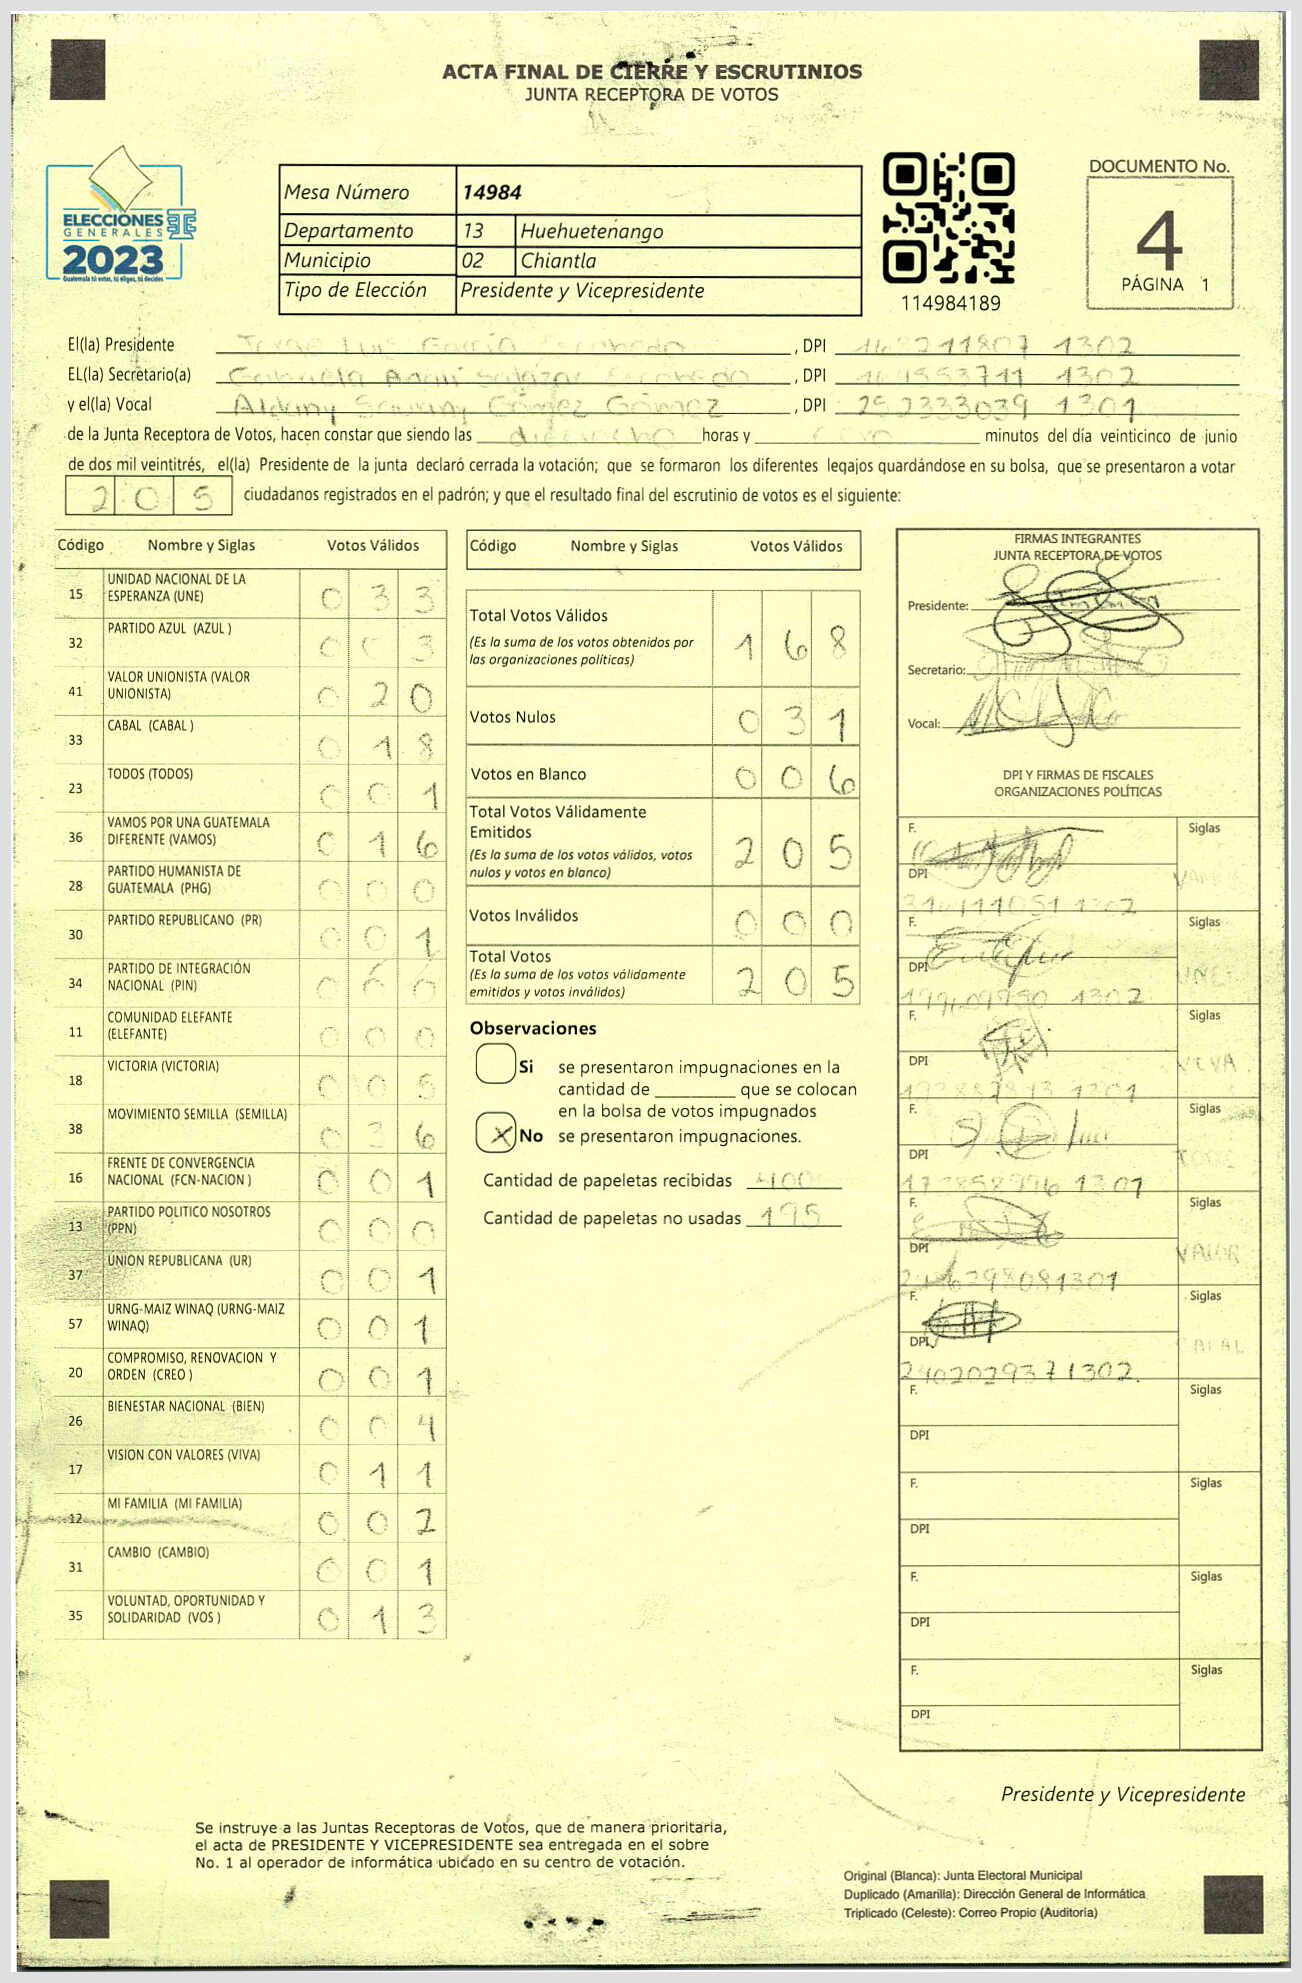 ACTA FINAL DE CIERRE Y ESCRUTINIOS
JUNTA RECEPTORA DE VOTOS
ELECCIONES
GENERALES
2023
Guatemala tú votas, tú eliges, tú decides
Mesa Número 14984
Departamento 13 Huehuetenango
Municipio 02 Chiantla
Tipo de Elección Presidente y Vicepresidente
114984189
DOCUMENTO No.
4
PÁGINA 1
El(la) Presidente Luis García , DPI 1302
EL(la) Secretario(a) Gabriela Salazar , DPI 1302
y el(la) Vocal Gómez Gómez , DPI 252333039 1301
de la Junta Receptora de Votos, hacen constar que siendo las dieciocho horas y cero minutos del día veinticinco de junio
de dos mil veintitrés, el(la) Presidente de la junta declaró cerrada la votación; que se formaron los diferentes legajos guardándose en su bolsa, que se presentaron a votar
205 ciudadanos registrados en el padrón; y que el resultado final del escrutinio de votos es el siguiente:
Código Nombre y Siglas Votos Válidos
15 UNIDAD NACIONAL DE LA ESPERANZA (UNE) 033
32 PARTIDO AZUL (AZUL ) 003
41 VALOR UNIONISTA (VALOR UNIONISTA) 020
33 CABAL (CABAL ) 018
23 TODOS (TODOS) 001
36 VAMOS POR UNA GUATEMALA DIFERENTE (VAMOS) 016
28 PARTIDO HUMANISTA DE GUATEMALA (PHG) 000
30 PARTIDO REPUBLICANO (PR) 001
34 PARTIDO DE INTEGRACIÓN NACIONAL (PIN) 000
11 COMUNIDAD ELEFANTE (ELEFANTE) 000
18 VICTORIA (VICTORIA) 005
38 MOVIMIENTO SEMILLA (SEMILLA) 036
16 FRENTE DE CONVERGENCIA NACIONAL (FCN-NACION ) 001
13 PARTIDO POLITICO NOSOTROS (PPN) 000
37 UNION REPUBLICANA (UR) 001
57 URNG-MAIZ WINAQ (URNG-MAIZ WINAQ) 001
20 COMPROMISO, RENOVACION Y ORDEN (CREO ) 001
26 BIENESTAR NACIONAL (BIEN) 004
17 VISION CON VALORES (VIVA) 011
12 MI FAMILIA (MI FAMILIA) 002
31 CAMBIO (CAMBIO) 001
35 VOLUNTAD, OPORTUNIDAD Y SOLIDARIDAD (VOS ) 013
Código Nombre y Siglas Votos Válidos
Total Votos Válidos 168
(Es la suma de los votos obtenidos por
las organizaciones políticas)
Votos Nulos 031
Votos en Blanco 006
Total Votos Válidamente
Emitidos 205
(Es la suma de los votos válidos, votos
nulos y votos en blanco)
Votos Inválidos 000
Total Votos 205
(Es la suma de los votos válidamente
emitidos y votos inválidos)
Observaciones
Si se presentaron impugnaciones en la
cantidad de ________ que se colocan
en la bolsa de votos impugnados
X No se presentaron impugnaciones.
Cantidad de papeletas recibidas 400
Cantidad de papeletas no usadas 195
FIRMAS INTEGRANTES
JUNTA RECEPTORA DE VOTOS
Presidente:
Secretario:
Vocal:
DPI Y FIRMAS DE FISCALES
ORGANIZACIONES POLÍTICAS
F. Siglas
DPI VAMOS
1302
F. Siglas
DPI UNE
1302
F. Siglas
DPI VIVA
1301
F. Siglas
DPI TODOS
1301
F. Siglas
DPI VALOR
1301
F. Siglas
DPI CABAL
2402029371302
F. Siglas
DPI
F. Siglas
DPI
F. Siglas
DPI
F. Siglas
DPI
Presidente y Vicepresidente
Se instruye a las Juntas Receptoras de Votos, que de manera prioritaria,
el acta de PRESIDENTE Y VICEPRESIDENTE sea entregada en el sobre
No. 1 al operador de informática ubicado en su centro de votación.
Original (Blanca): Junta Electoral Municipal
Duplicado (Amarilla): Dirección General de Informática
Triplicado (Celeste): Correo Propio (Auditoría)